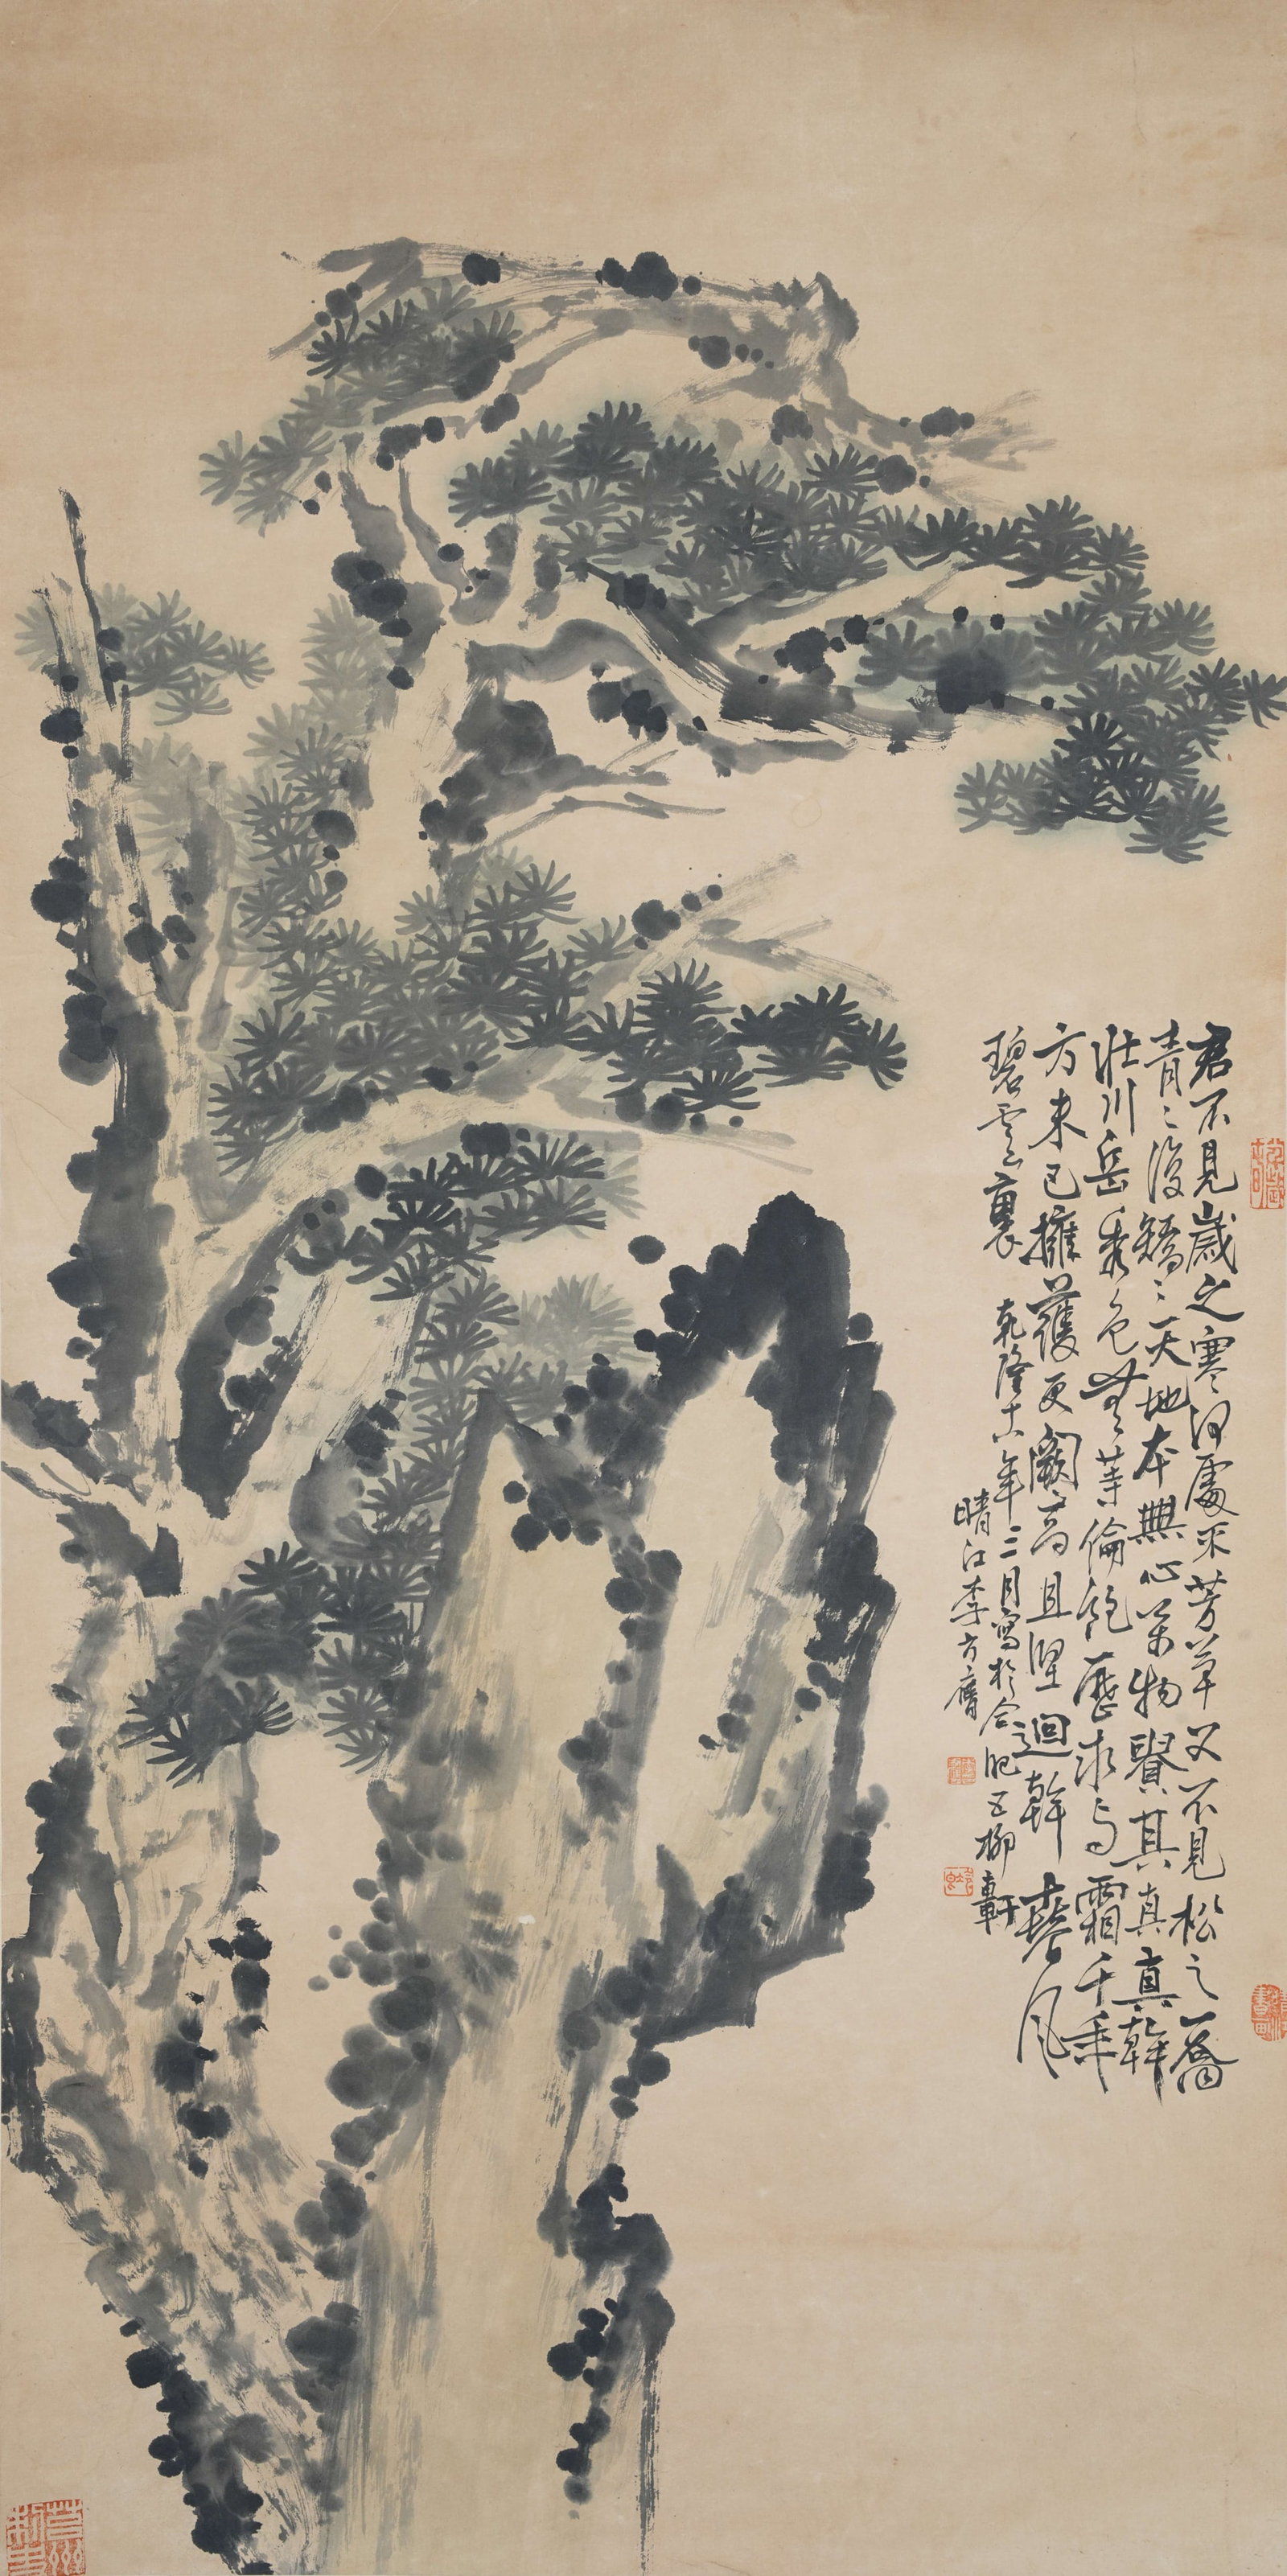 君不見歲之寒何處求芳草又不見松之喬
青〻復矯〻天地本無心萬物貴其真直幹
壯川岳秀色無等倫飽歷冰與霜千年
方未已擁護更闌高且堅迴幹春風
碧雲裏
乾隆十八年二月寫於合肥五柳軒
晴江李方膺